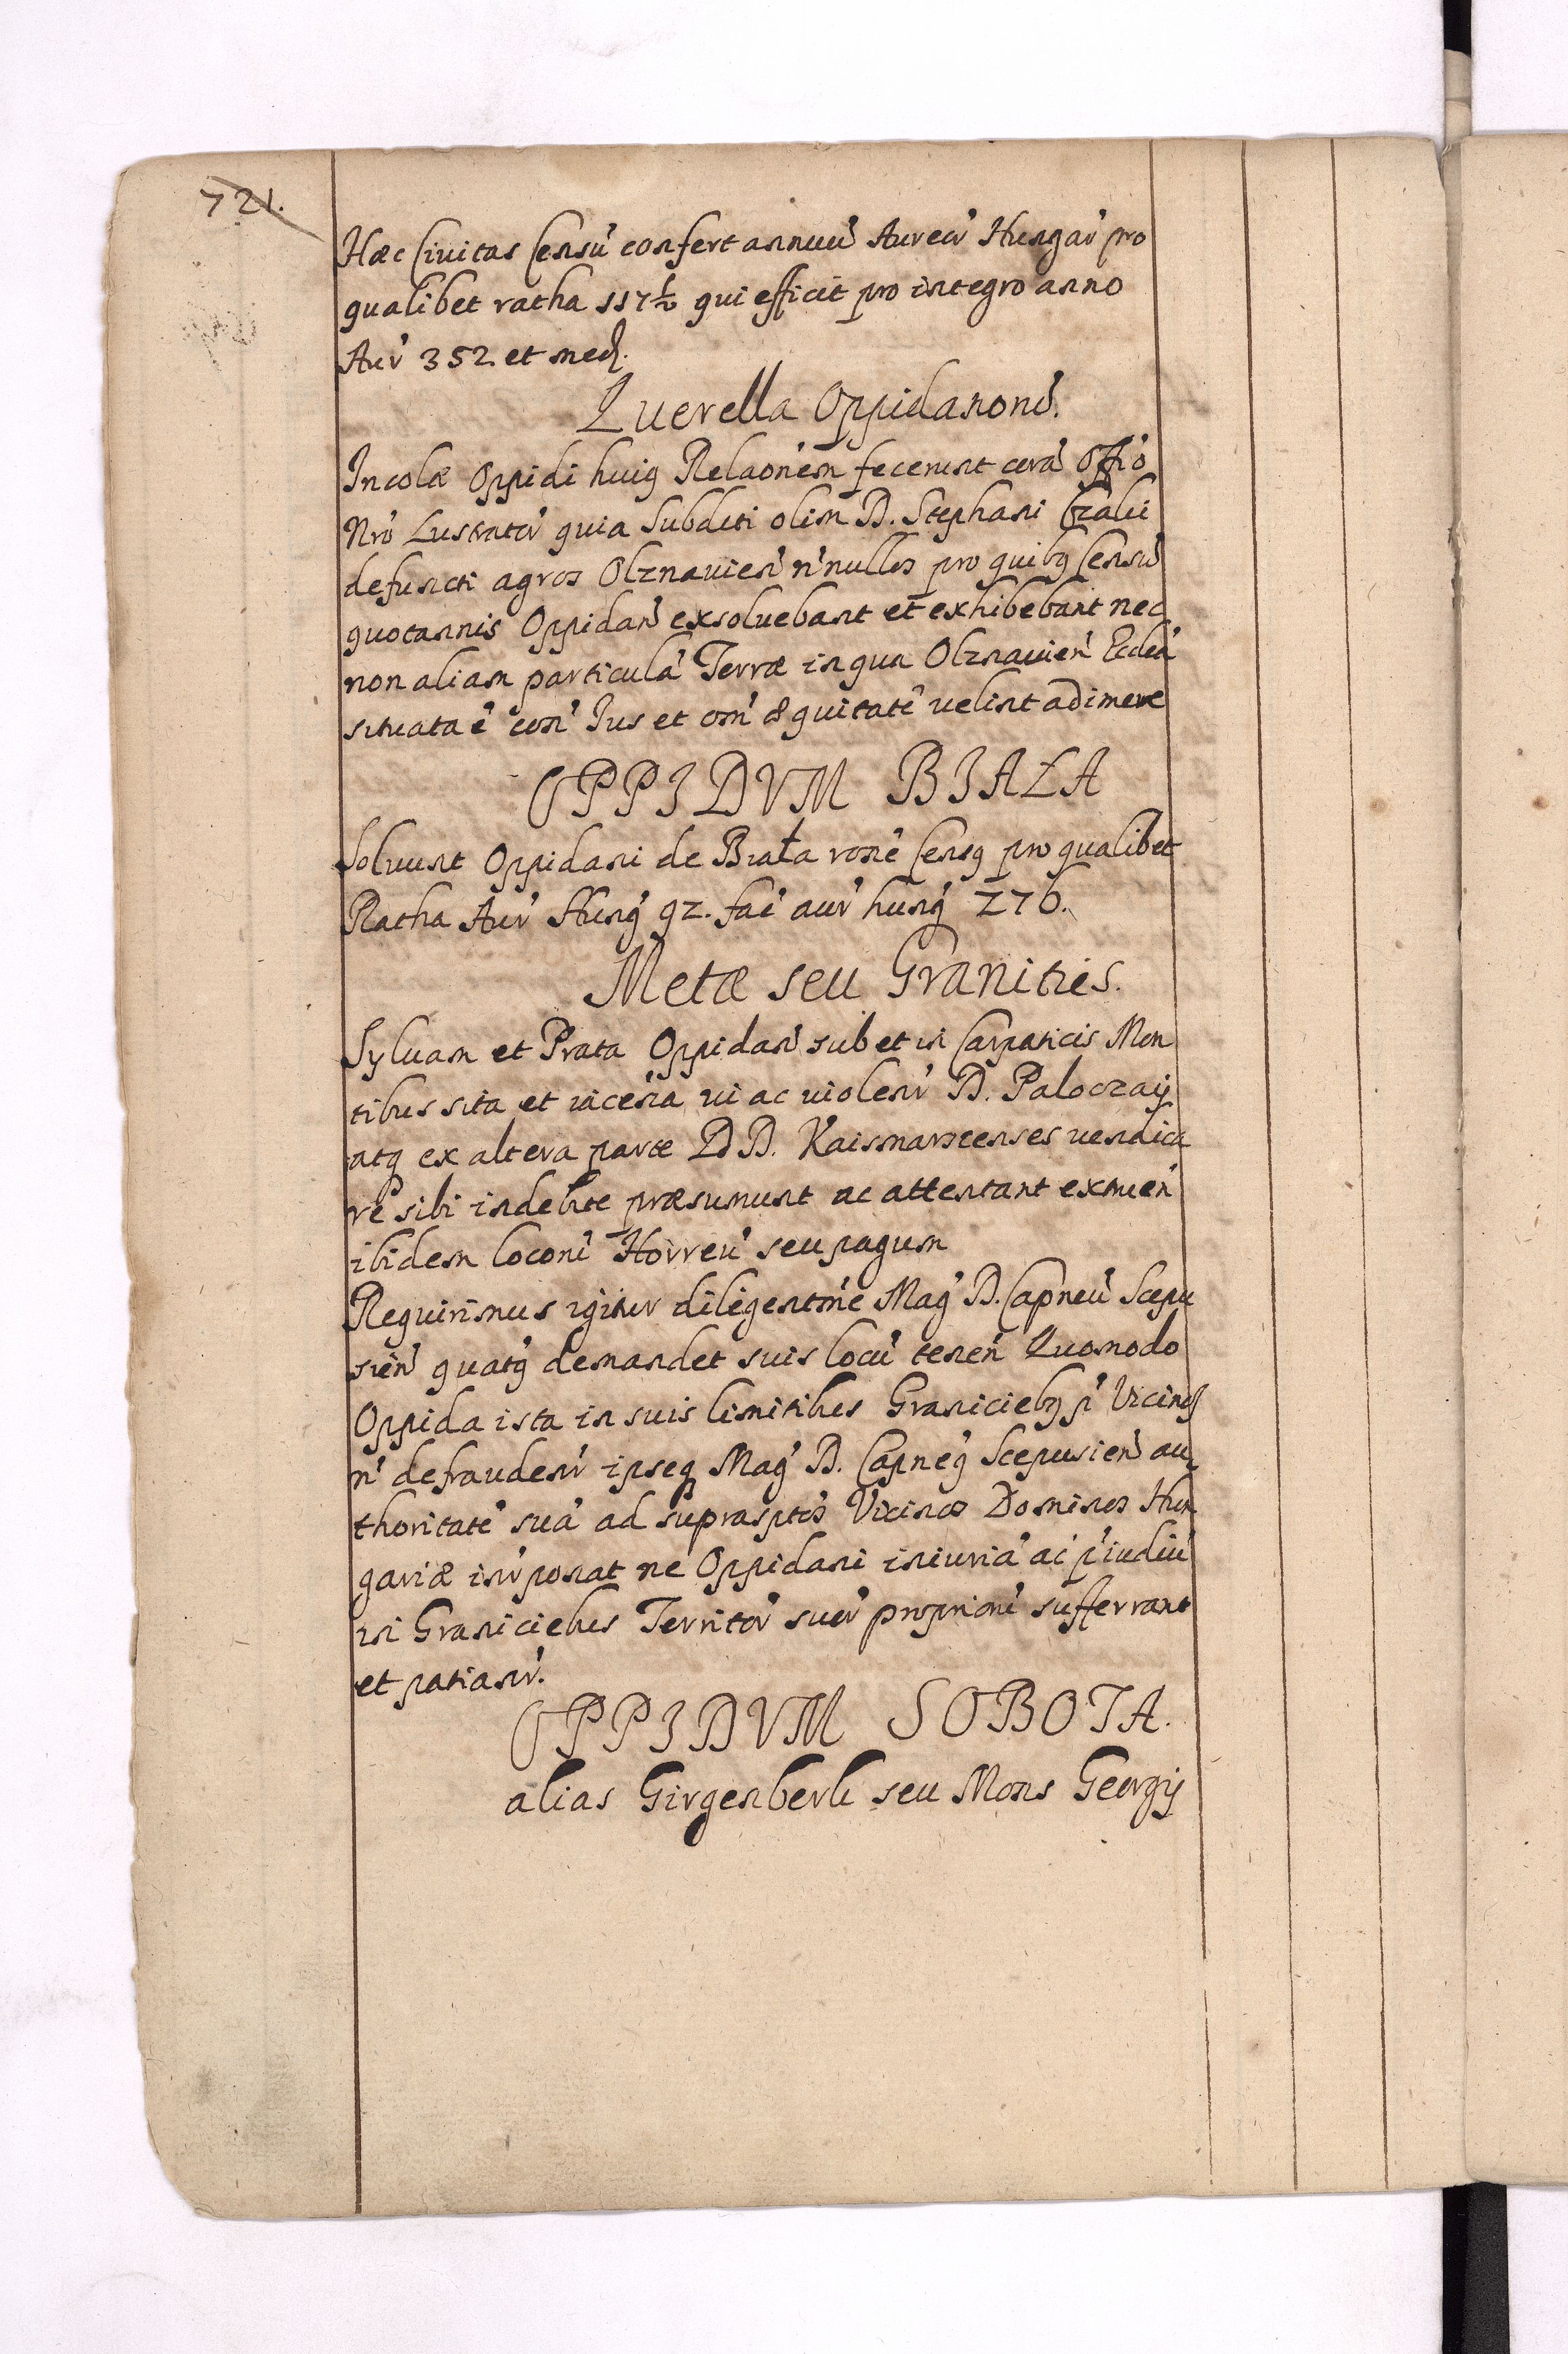 721.
Hæc Civitas Censu' confert annuu' Aureor' Hungar' pro
qualibet ratha 117½ qui efficit pro integro anno
Aur' 352 et med.
Querella Oppidanoru'.
Incolæ Oppidi huiq Relaon'em fecerunt cora' Offio
Nro' Lustrator' quia Subditi olim D. Stephani Czaki
defuncti agros Olznauien' n'nullos pro quibq Censu'
quotannis Oppidan' exsoluebant et exhibebant nec
non aliam particula' Terræ in qua Olznauien' Eccl'ia
situata e' con' Ius et om' æquitate' velint adimere
OPPIDVM BIAŁA
Soluunt Oppidani de Biała rone' Censq pro qualibet
Ratha Aur' Hung' 92. fac' aur' hung' 276.
Metæ seu Granities.
Syluam et Prata Oppidan' sub et in Carpaticis Mon
tibus sita et iacen'ia vi ac violen'r D. Paloczaij
atq ex altera parte DD. Kaismarscenses vendica
re sibi indebite præsumunt ac attentant
ibidem locoru' Horreu' seu pagum
Requirimus igitur diligentm'e Mag' D. Capneu' Scepu
sien' quatq demandet suis locu' tenen' Quomodo
Oppida ista in suis limitibus Graniciebq p' Vicinos
n' defraudenr' ipseq Mag' D. Capneq Scepusien' au
thoritate' sua' ad suprasptos' Vicinos Dominos Hun
gariæ inr'ponat ne Oppidani iniuria' ac p'iudiu'
in Graniciebus Territor' suor' proprioru' sufferrant
et patianr'.
OPPIDVM SOBOTA.
alias Girgenberk seu Mons Georgij